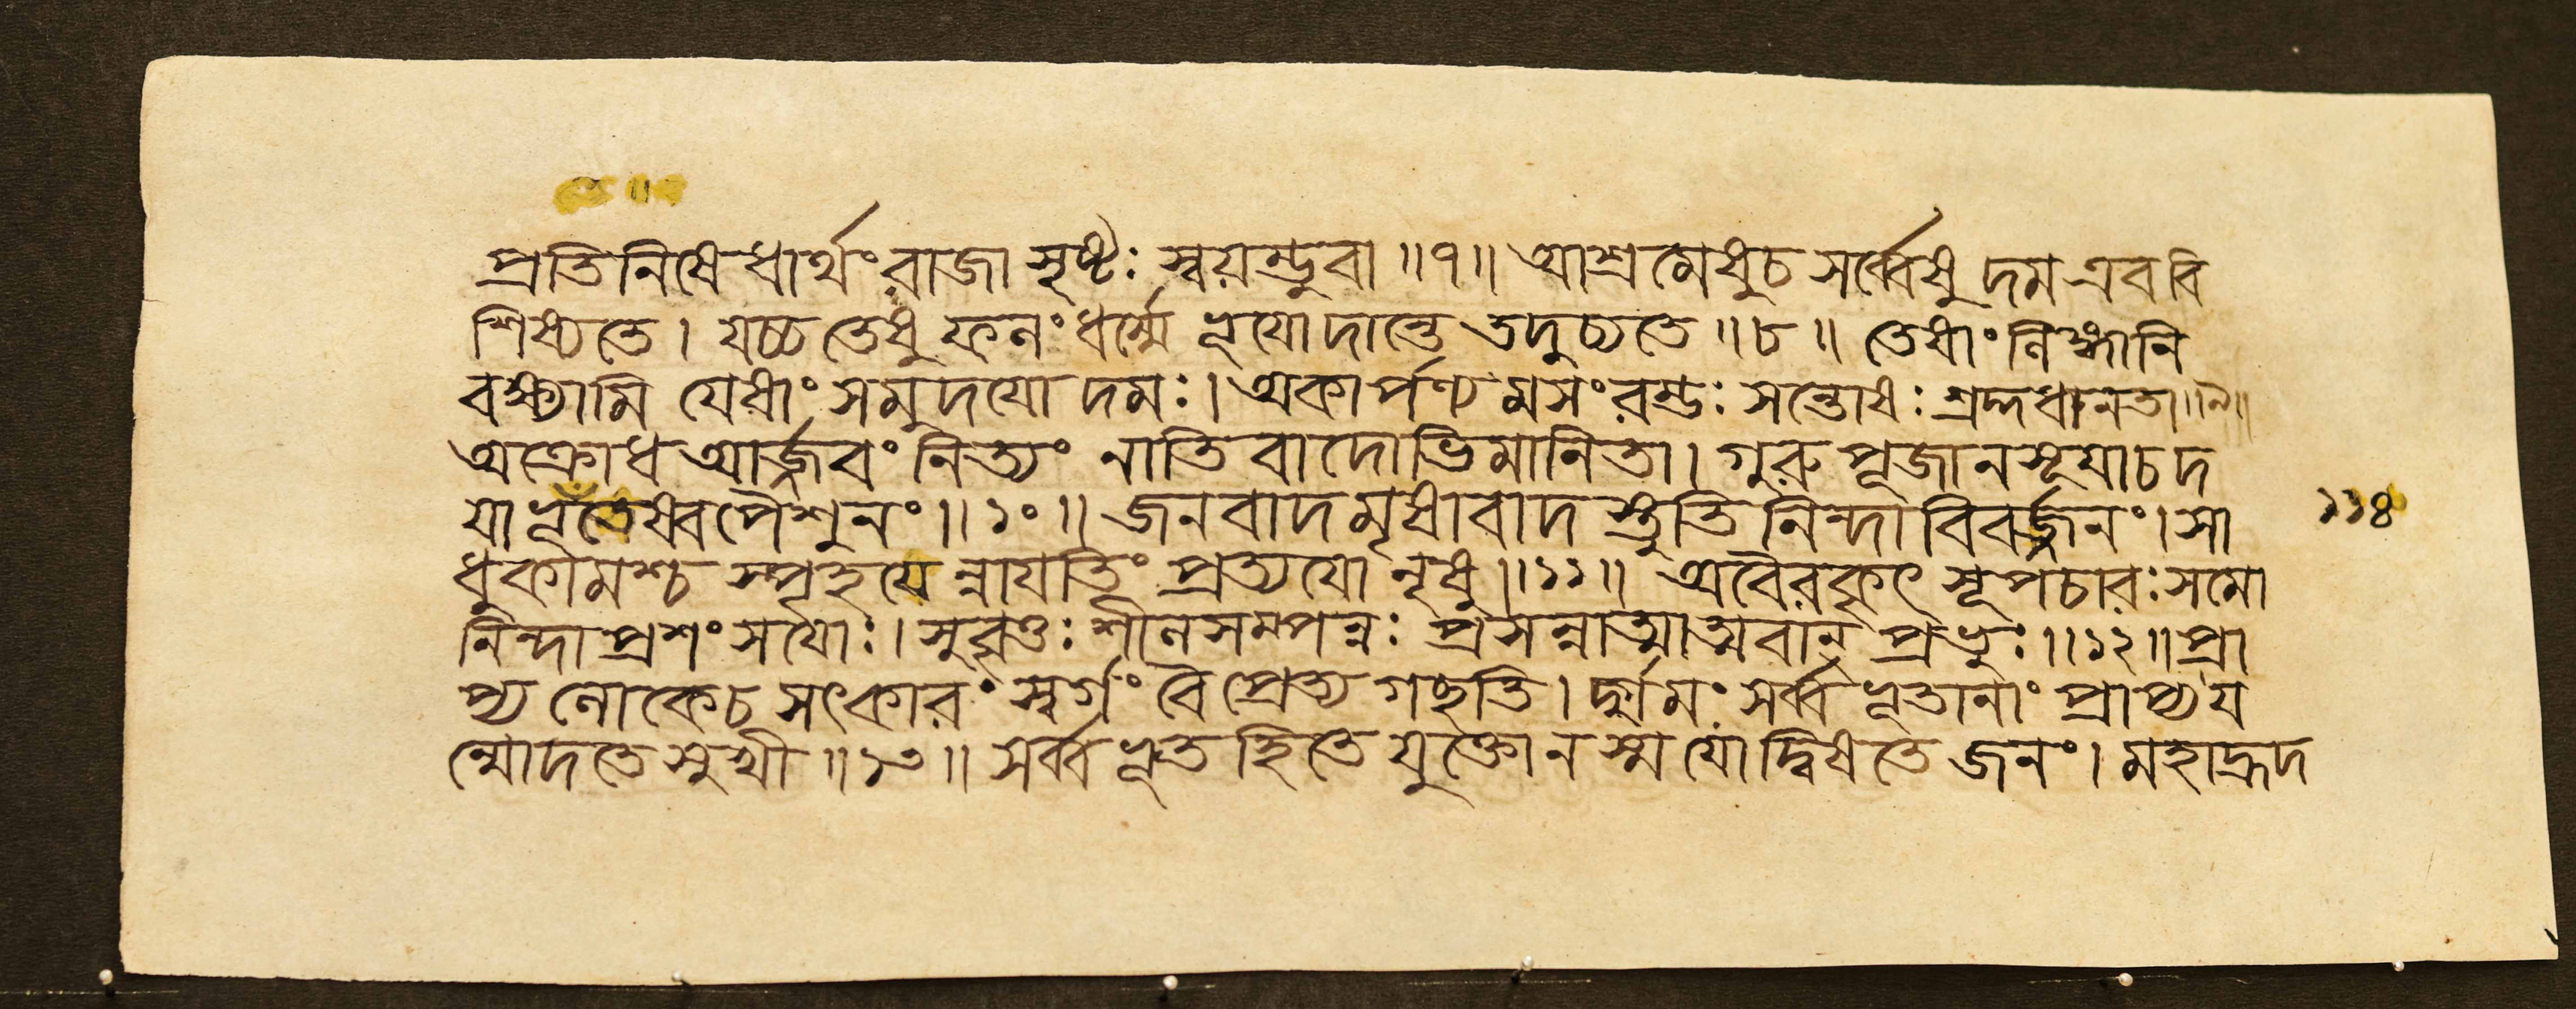 প্রতিনিষেধার্থং রাজা সৃষ্টঃ স্বয়ম্ভুবা ॥৭॥ আশ্রমেষুচ সর্ব্বেষু দম এব বি
শিষ্যতে। যচ্চ তেষু ফলং ধর্ম্মে ভূয়ো দান্তে তদুচ্যতে ॥৮॥ তেষাং লিঙ্গানি
বক্ষ্যামি যেষাং সমুদয়ো দমঃ। অকার্পণ্যমসংরম্ভঃ সন্তোষঃ শ্রদ্দধানতা ॥৯॥
অক্রোধ আর্জ্জবং নিত্যং নাতিবাদোভিমানিতা। গুরুপূজানসূয়াচ দ
য়া ভূতেষ্বপৈশুনং ॥১০॥ জনবাদমৃষাবাদ স্তুতিনিন্দা বিবর্জ্জনং। সা
ধুকামশ্চ স্পৃহয়েন্নায়তিং প্রত্যয়ো নৃষু ॥১১॥ অবৈরকৃৎ সূপচারঃ সমো
নিন্দাপ্রশংসয়োঃ। সুবৃত্তঃ শীলসম্পন্নঃ প্রসন্নাত্মাত্মবান্ প্রভুঃ ॥১২॥ প্রা
প্য লোকেচ সৎকারং স্বর্গং বৈ প্রেত্য গচ্ছতি। দুর্গমং সর্ব্বভূতানাং প্রাপ্য য
ন্মোদতে সুখী ॥১৩॥ সর্ব্বভূতহিতে যুক্তো ন স্ম যো দ্বিষতে জনং। মহাহ্রদ
১১৪